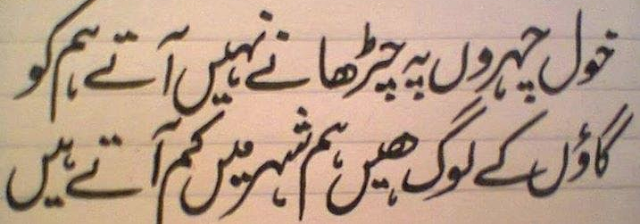 خول چہروں پہ چڑھانے نہیں آتے ہم کو
گاؤں کے لوگ ھیں ہم شہر میں کم آتے ہیں